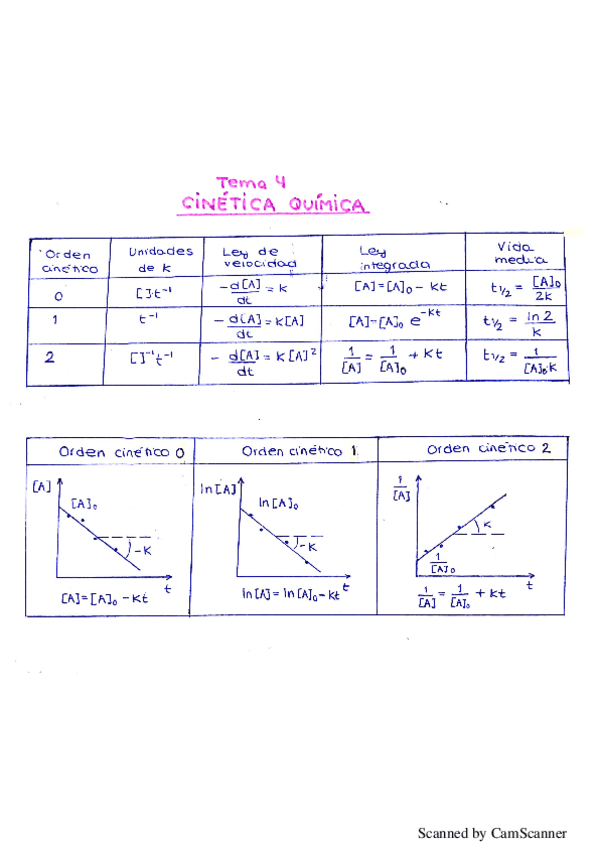 Tema 4
CINÉTICA QUÍMICA
Orden cinético | Unidades de k | Ley de velocidad | Ley integrada | Vida media
0 | [ ]·t⁻¹ | -d[A]/dt = k | [A]=[A]₀ - kt | t₁/₂ = [A]₀/2k
1 | t⁻¹ | -d[A]/dt = k[A] | [A]=[A]₀ e^-kt | t₁/₂ = ln 2/k
2 | [ ]⁻¹t⁻¹ | - d[A]/dt = k[A]² | 1/[A] = 1/[A]₀ + kt | t₁/₂ = 1/[A]₀k
Orden cinético 0 | Orden cinético 1 | Orden cinético 2
[A] [A]₀ -k t
[A]=[A]₀ -kt
ln[A] ln[A]₀ -k t
ln[A]= ln[A]₀ - kt
1/[A] 1/[A]₀ k t
1/[A] = 1/[A]₀ + kt
Scanned by CamScanner